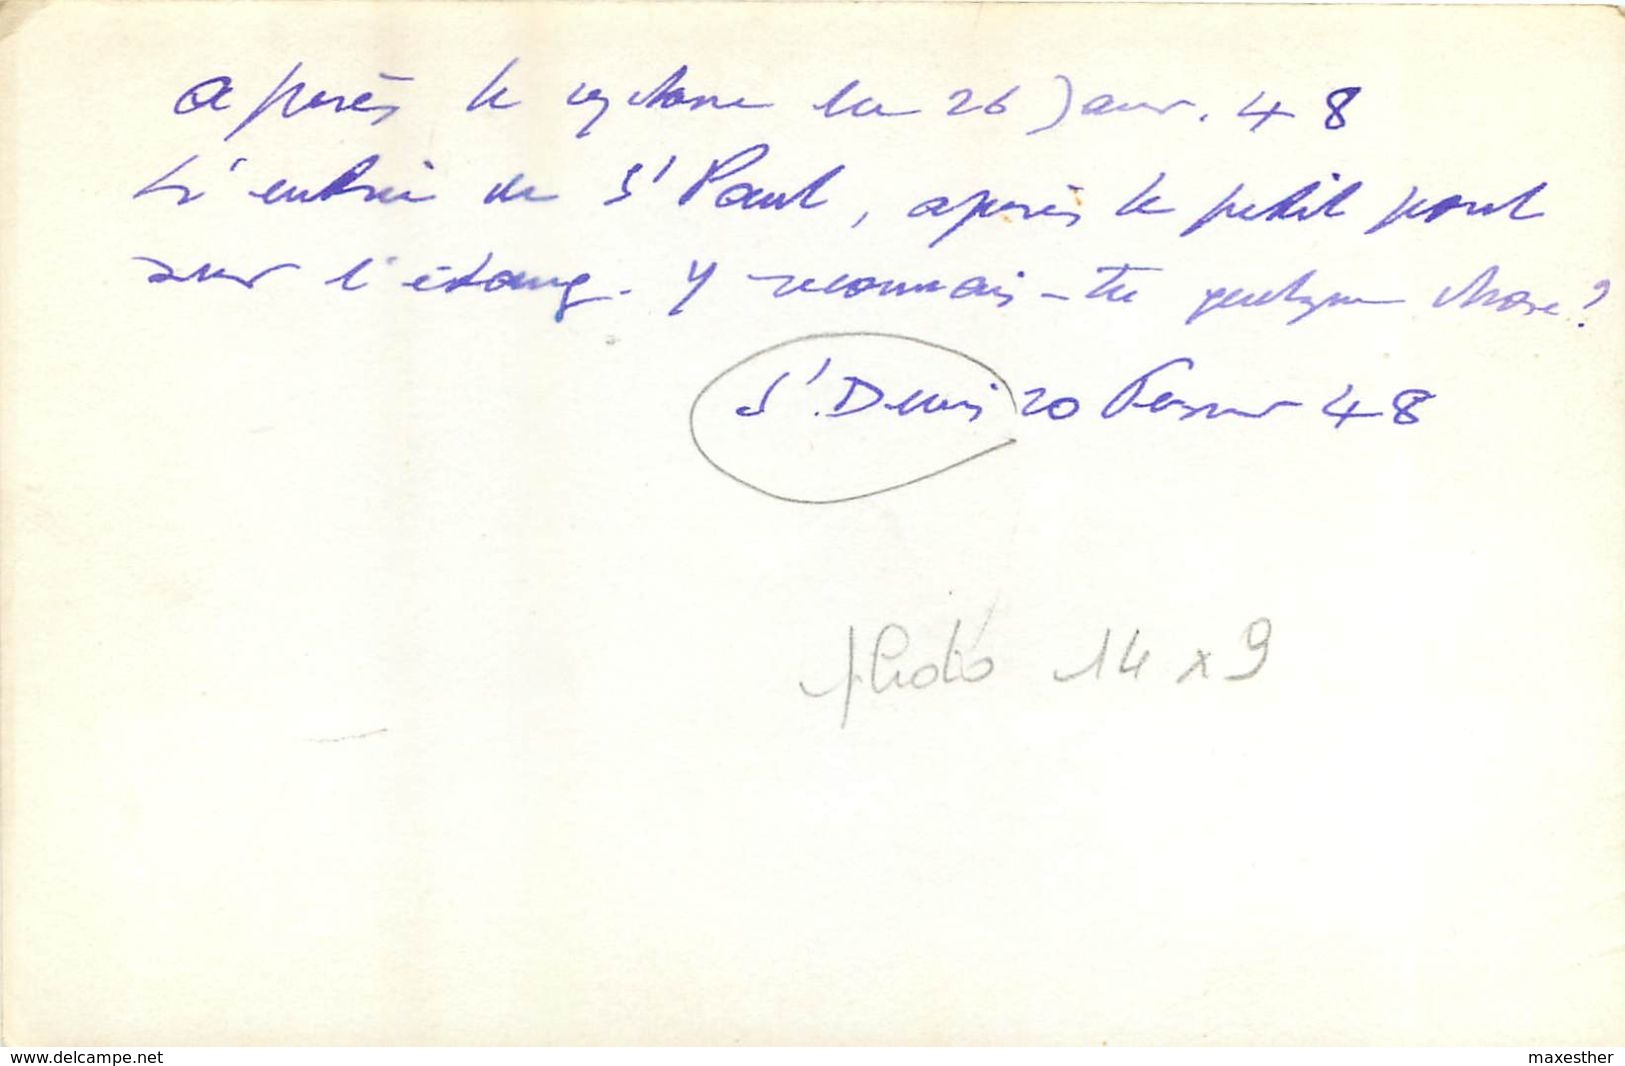 après le cyclone du 26 Janv. 48
L'entrée de St Paul, après le petit pont
sur l'étang. Y reconnais-tu quelque chose?
St Denis 20 Février 48
Photo 14 x 9
www.delcampe.net
maxesther